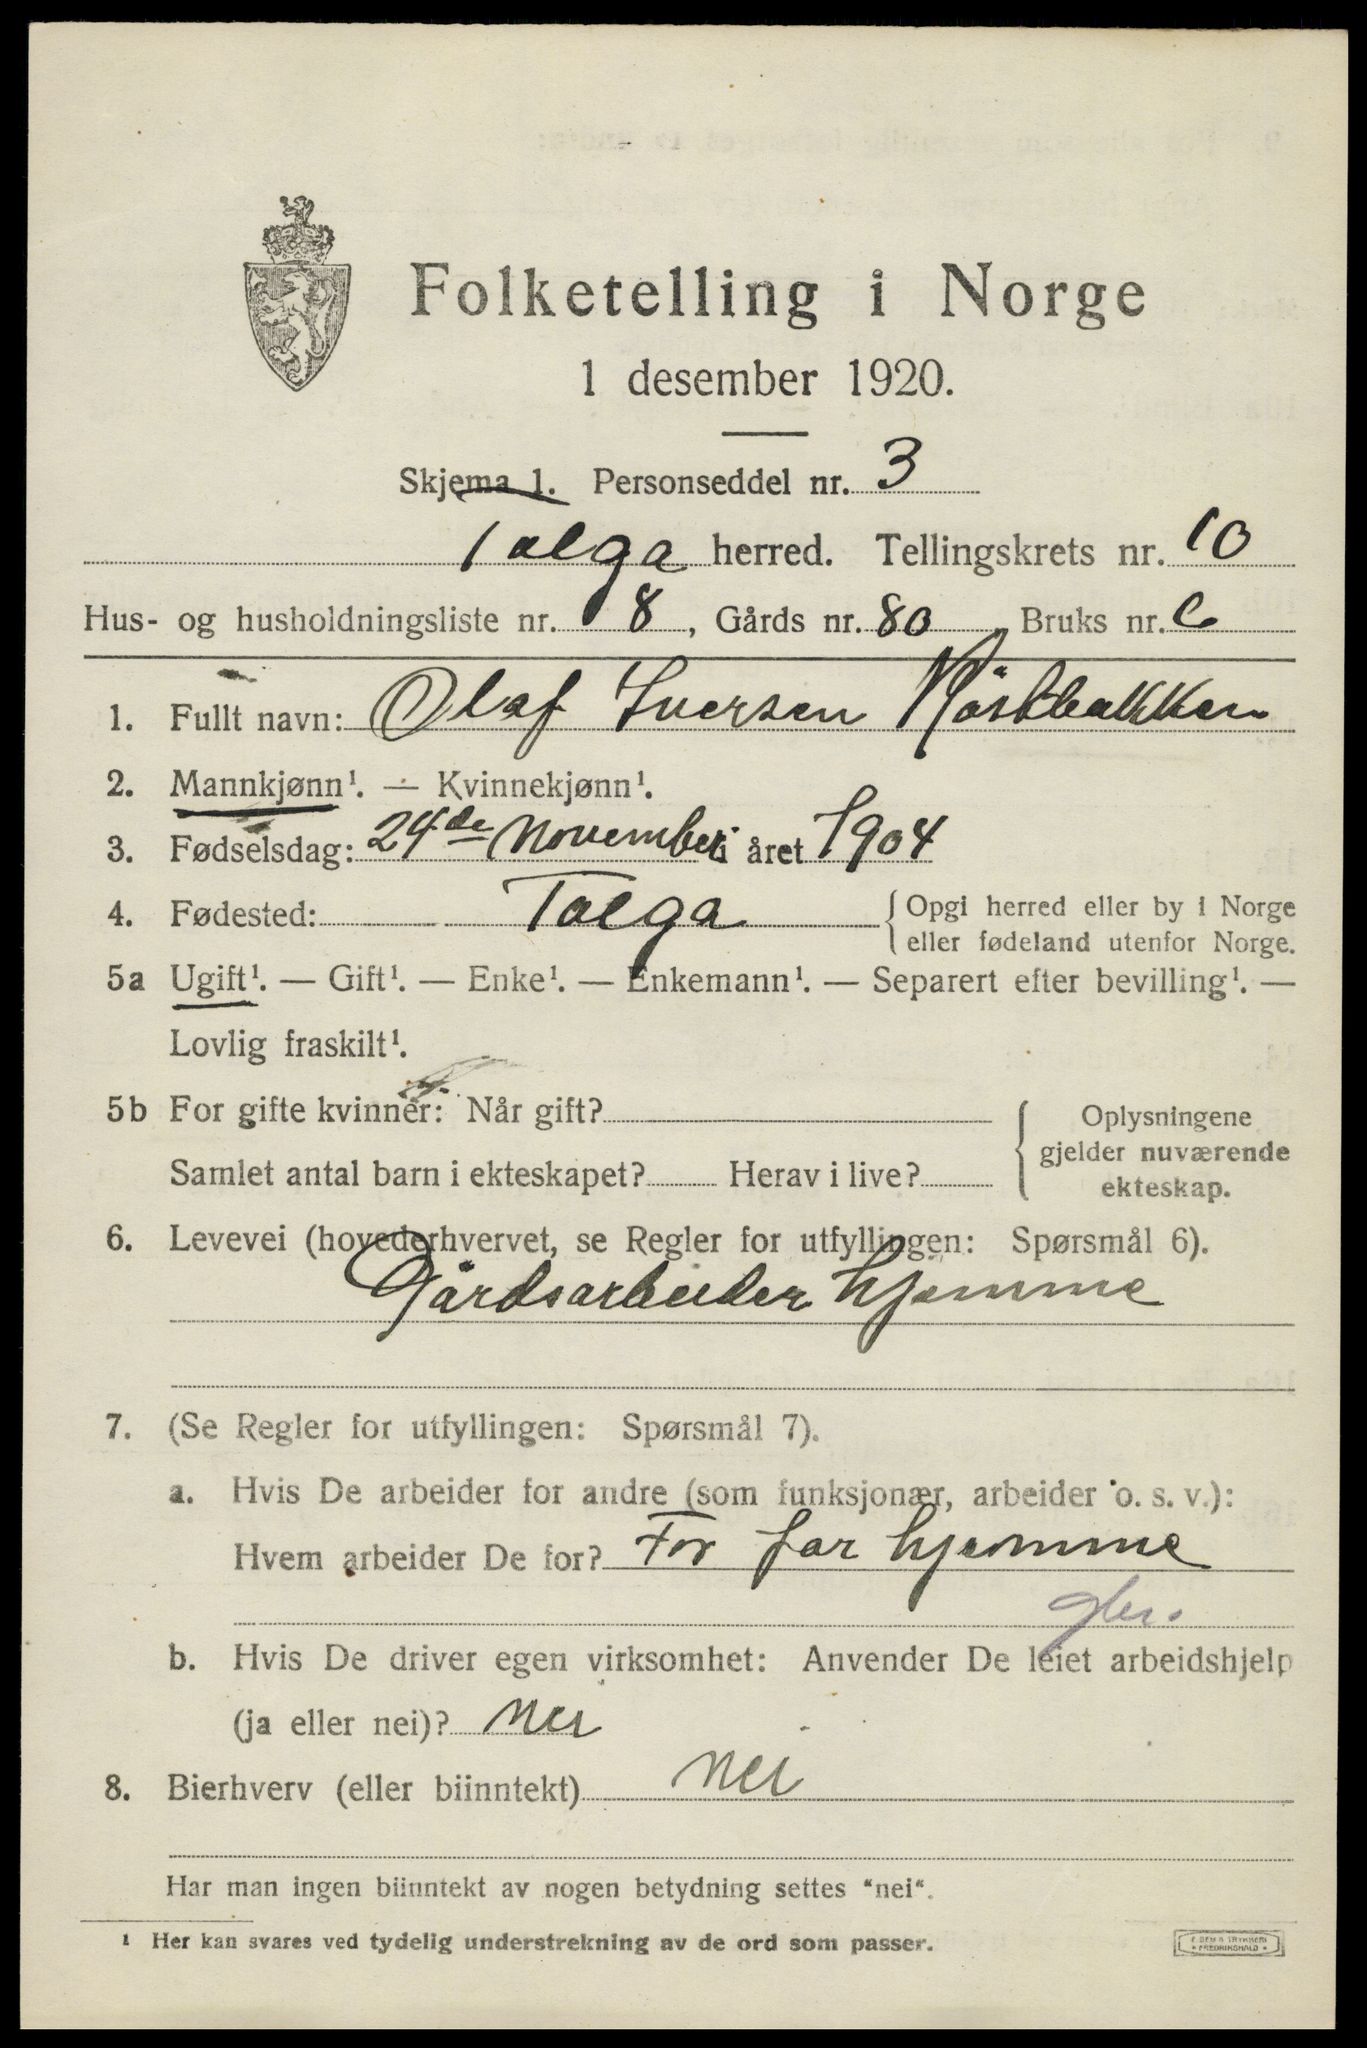 Folketelling i Norge
1 desember 1920.
Skjema 1. Personseddel nr. 3
Tolga herred. Tellingskrets nr. 10
Hus- og husholdningsliste nr. 8, Gårds nr. 80, Bruks nr.
1. Fullt navn: Olaf Iversen Röstbakken
2. Mannkjønn¹. — Kvinnekjønn¹.
3. Fødselsdag: 24de November i året 1904
4. Fødested: Tolga {Opgi herred eller by i Norge
eller fødeland utenfor Norge.
5a Ugift¹. — Gift¹. — Enke¹. — Enkemann¹. — Separert efter bevilling¹. —
Lovlig fraskilt¹.
5b For gifte kvinner: Når gift?
Samlet antal barn i ekteskapet? Herav i live?
Oplysningene
gjelder nuværende
ekteskap.
6. Levevei (hovederhvervet, se Regler for utfyllingen: Spørsmål 6).
Gårdsarbeider hjemme
7. (Se Regler for utfyllingen: Spørsmål 7).
a. Hvis De arbeider for andre (som funksjonær, arbeider o. s. v.):
Hvem arbeider De for? For far hjemme
b. Hvis De driver egen virksomhet: Anvender De leiet arbeidshjelp
(ja eller nei)? nei
8. Bierhverv (eller biinntekt) nei
Har man ingen biinntekt av nogen betydning settes "nei".
¹ Her kan svares ved tydelig understrekning av de ord som passer.